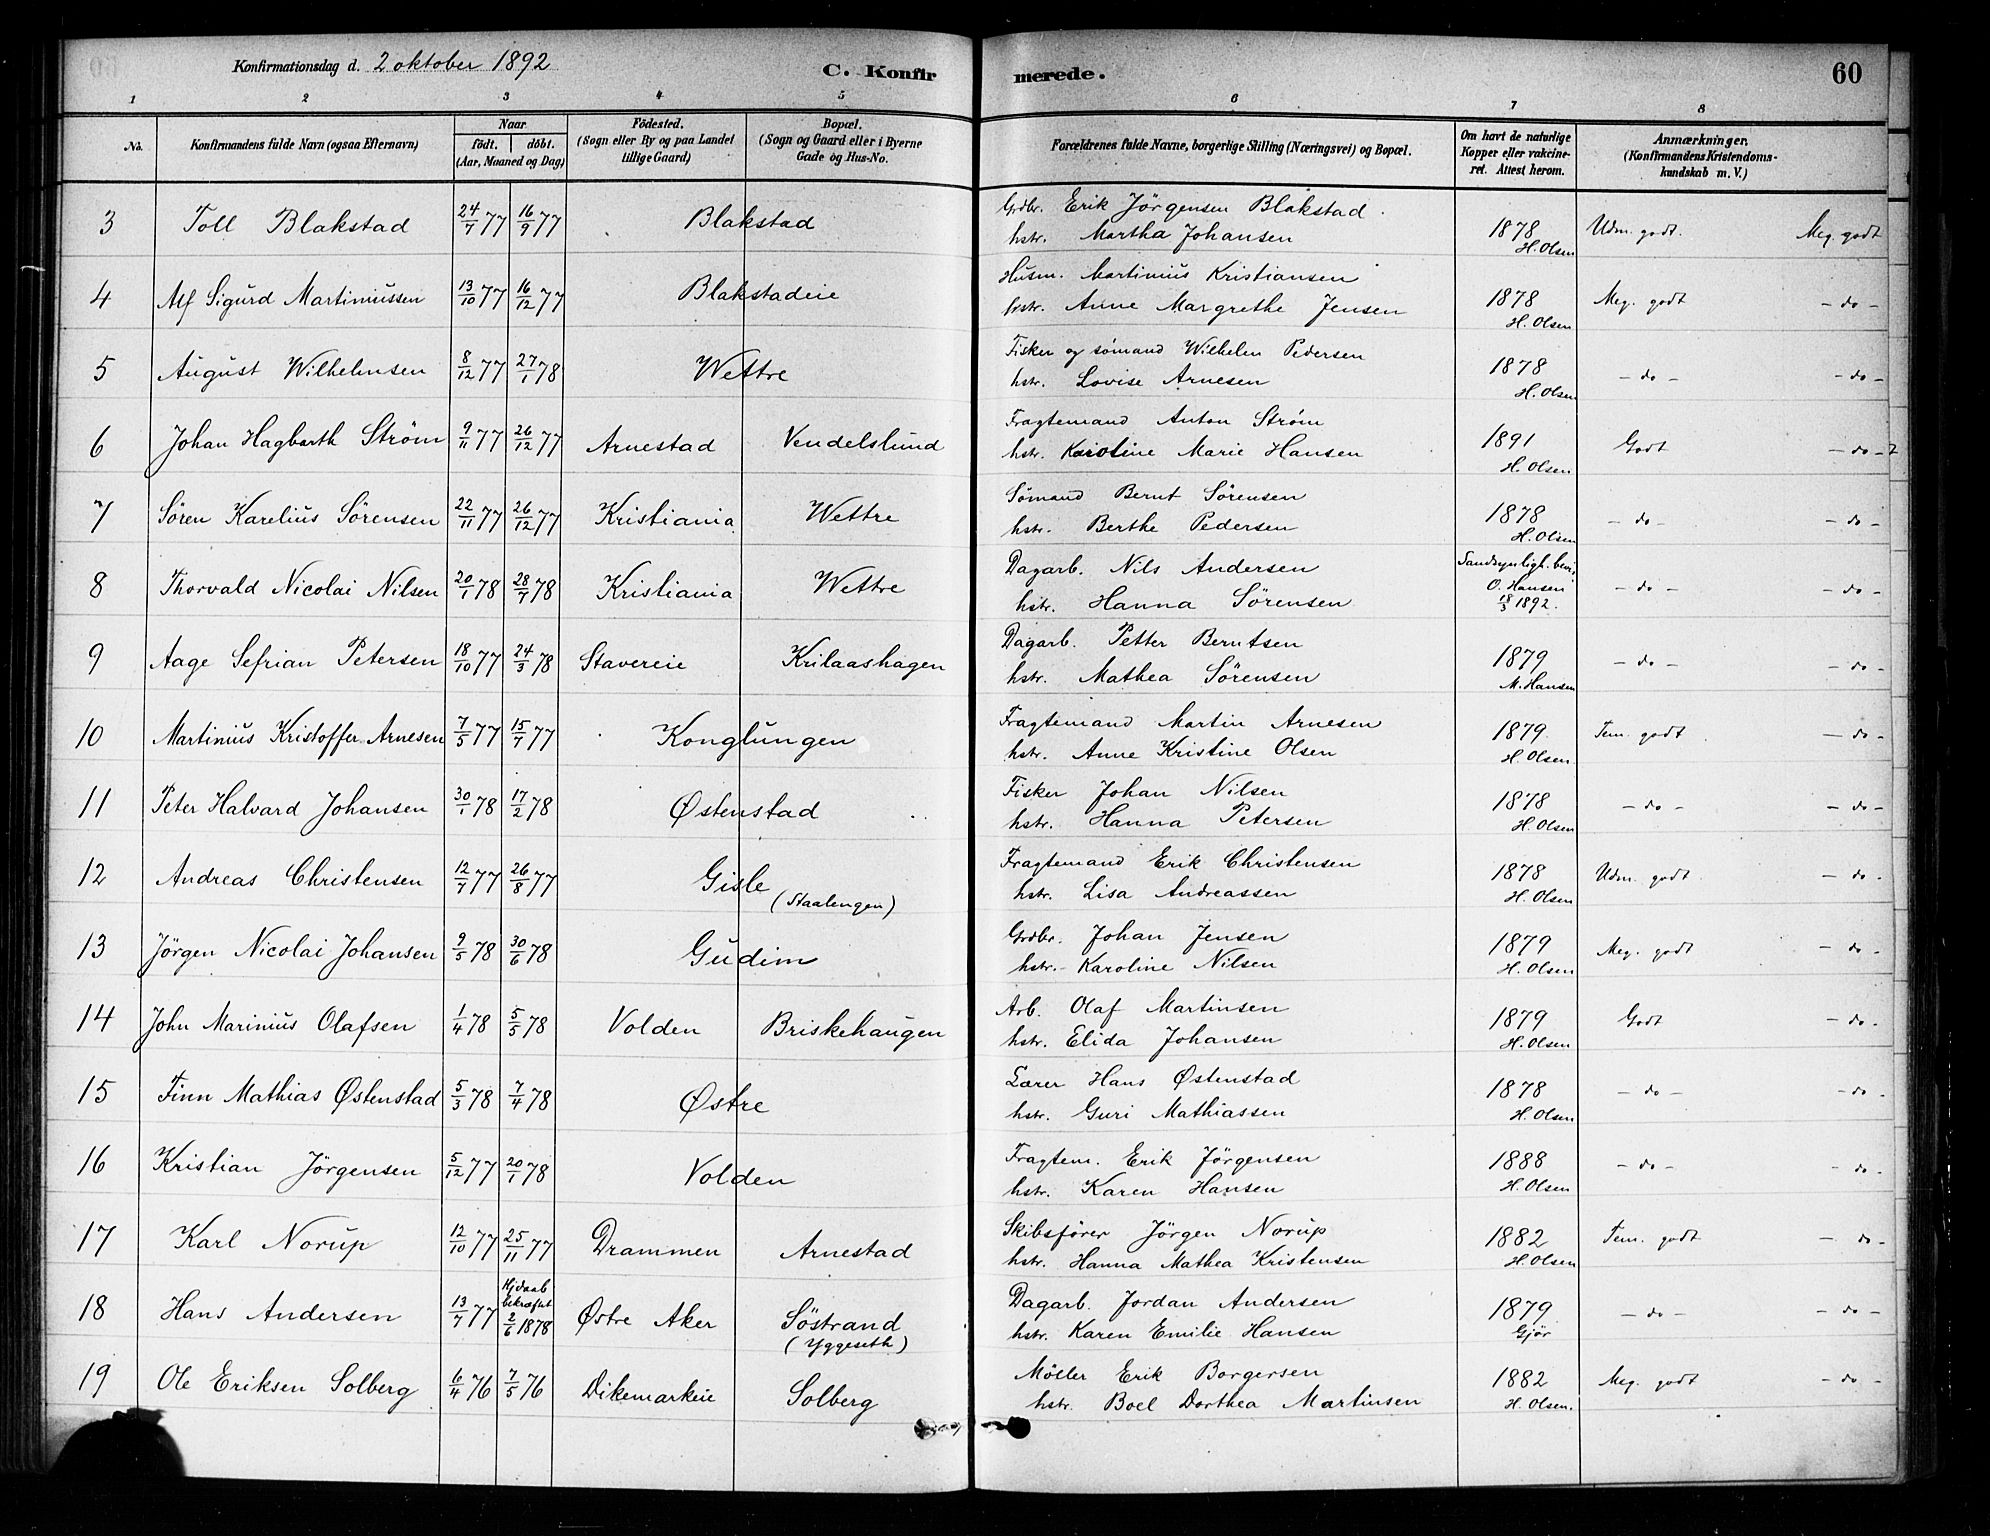 Konfirmationsdag d. 2 oktober 1892 C. Konfirmerede. 60
1 2 3 4 5 6 7 8
No. Konfirmandens fulde Navn (ogsaa Efternavn) Naar født. døbt. (Aar, Maaned og Dag) Fødested. (Sogn eller By og paa Landet tillige Gaard) Bopæl. (Sogn og Gaard eller i Byerne Gade og Hus-No. Forældrenes fulde Navne, borgerlige Stilling (Næringsvei) og Bopæl. Om havt de naturlige Kopper eller vakcineret. Attest herom. Anmærkninger. (Konfirmandens Kristendomskundskab m. V.)
3 Toll Blakstad 24/7 77 16/9 77 Blakstad Grdbr. Erik Jörgensen Blakstad 1878 Udm. godt. Meg. godt
hstr. Martha Johansen H. Olsen
4 Alf Sigurd Martiniussen 13/10 77 16/12 77 Blakstadeie Husm. Martinius Kristiansen 1878 Meg. godt - do -
hstr. Anne Margrethe Jensen H. Olsen
5 August Wilhelmsen 8/12 77 27/1 78 Wettre Fisker og sömand Wilhelm Pedersen 1878 - do - - do -
hstr. Lovise Arnesen H. Olsen
6 Johan Hagbarth Strøm 9/11 77 26/12 77 Arnestad Vendelslund Fragtemand Anton Strøm 1891 Godt - do -
hstr. Karoline Marie Hansen H. Olsen
7 Sören Karelius Sörensen 22/11 77 26/12 77 Kristiania Wettre Sömand Bernt Sörensen 1878 - do - - do -
hstr. Berthe Pedersen H. Olsen
8 Thorvald Nicolai Nilsen 20/1 78 28/7 78 Kristiania Wettre Dagarb. Nils Andersen Sandsynligh. bev. - do - - do -
hstr. Hanna Sörensen O. Hansen 18/3 1892.
9 Aage Sefrian Petersen 18/10 77 24/3 78 Stavereie Krilaashagen Dagarb. Petter Berntsen 1879 - do - - do -
hstr. Mathea Sörensen M. Hansen
10 Martinius Kristoffer Arnesen 7/5 77 15/7 77 Konglungen Fragtemand Martin Arnesen 1879. Tem. godt - do -
hstr. Anne Kristine Olsen H. Olsen
11 Peter Halvard Johansen 30/1 78 17/2 78 Østenstad Fisker Johan Nilsen 1878 - do - - do -
hstr. Hanna Petersen H. Olsen
12 Andreas Christensen 12/7 77 26/8 77 Gisle (Staalengen) Fragtemand Erik Christensen 1878 Udm. godt - do -
hstr. Lisa Andreassen H. Olsen
13 Jörgen Nicolai Johansen 9/5 78 30/6 78 Gudim Grdbr. Johan Jensen 1879 Meg. godt - do -
hstr. Karoline Nilsen H. Olsen
14 John Marinius Olafsen 1/4 78 5/5 78 Volden Briskehaugen Arb. Olaf Martinsen 1879 Godt - do -
hstr. Elida Johansen H. Olsen
15 Finn Mathias Østenstad 5/3 78 7/4 78 Østre Lærer Hans Østenstad 1878 - do - - do -
hstr. Guri Mathiassen H. Olsen
16 Kristian Jörgensen 5/12 77 20/1 78 Volden Fragtem. Erik Jörgensen 1888 - do - - do -
hstr. Karen Hansen H. Olsen
17 Karl Norup 12/10 77 25/11 77 Drammen Arnestad Skibsförer Jörgen Norup 1882 Tem. godt - do -
hstr. Hanna Mathea Kristensen H. Olsen
18 Hans Andersen 13/7 77 Hjdaab bekræftet 2/6 1878 Østre Aker Söstrand (Yggeseth) Dagarb. Jordan Andersen 1879 - do - - do -
hstr. Karen Emilie Hansen Gjör
19 Ole Eriksen Solberg 6/4 76 7/5 76 Dikemarkeie Solberg Möller Erik Borgersen 1882 Meg. godt - do -
hstr. Boel Dorthea Martinsen H. Olsen.